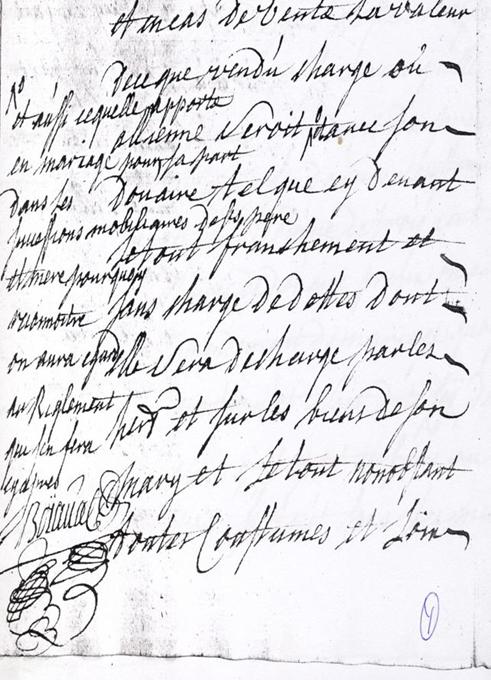 et en cas de vente la valeur
de ce que vendu chargé ou
alliené seroit avec son
Douaire tel que cy devant
le tout franchement et
sans charge de dettes dont
elle sera dechargé par les
et sur les biens de son
mary et le tout nonobstant
toutes Coustumes et Loix
et aussi ce quelle apporte
en mariage pour sa part
dans les
successions mobiliaires de ses pere
et mere pour quoy
reconnoitre
on aura egard
au Reglement
qui s'en fera
cy apres